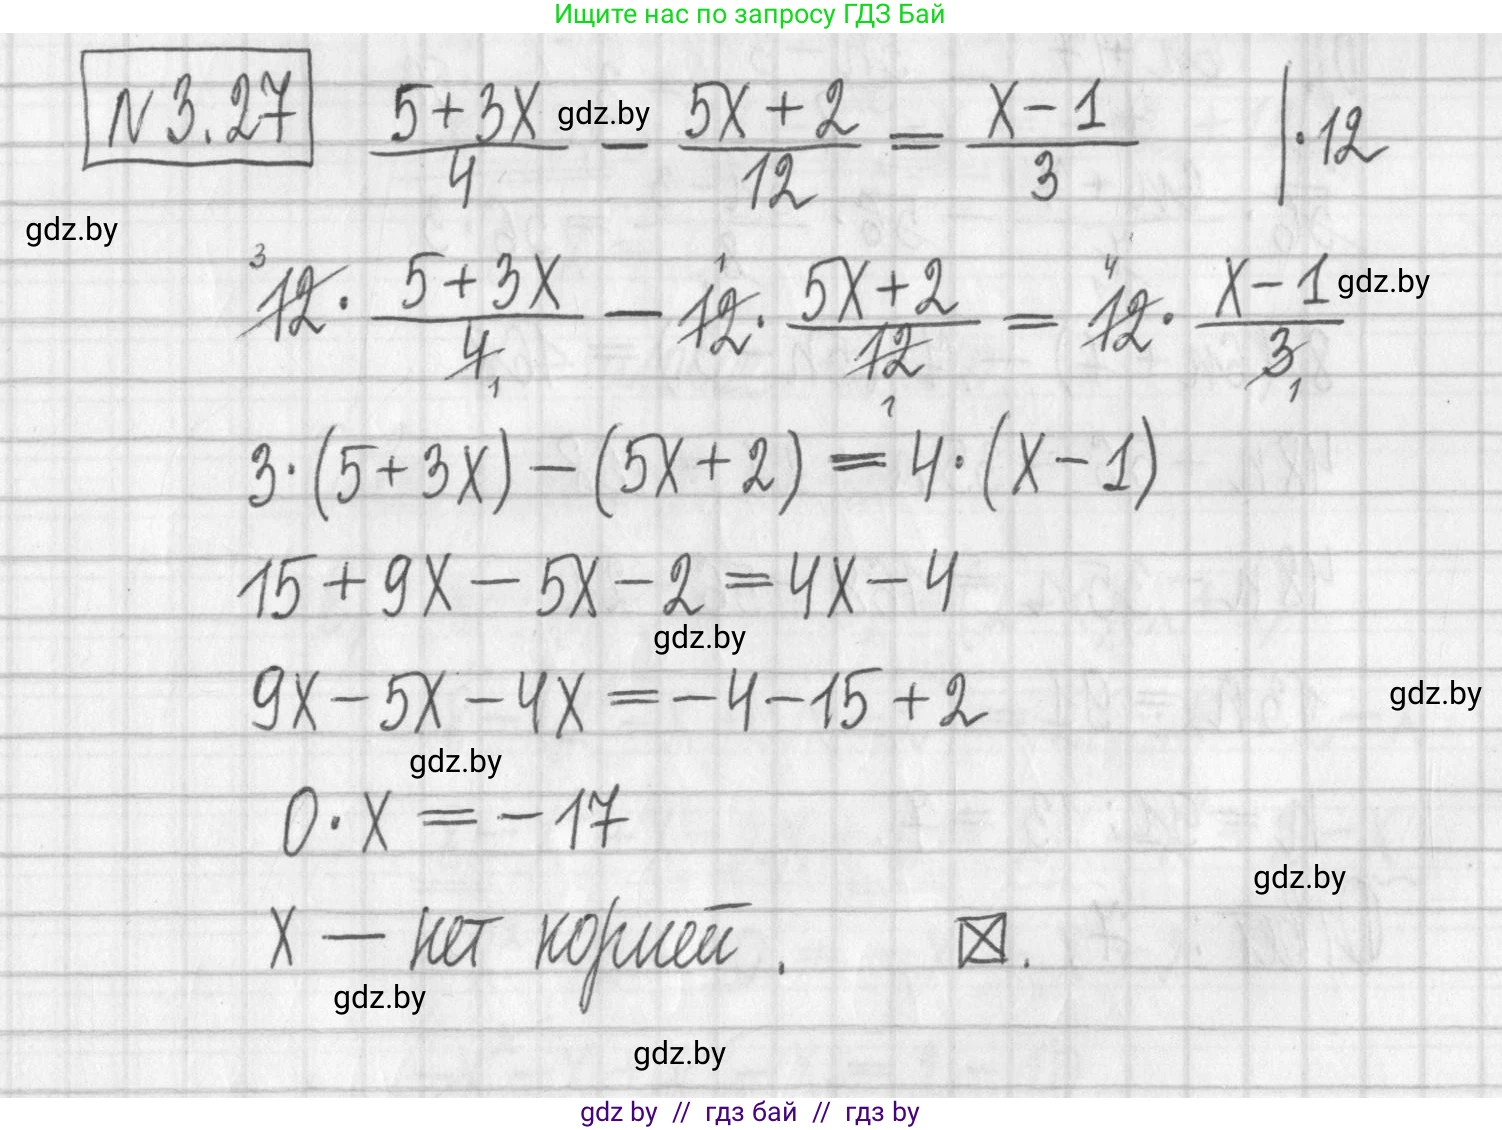 Ищите нас по запросу ГДЗ Бай
N 3.27 (5+3x)/4 − (5x+2)/12 = (x−1)/3 | ·12
gdz.by
gdz.by
3 12 · (5+3x)/4 1 − 1 12 · (5x+2)/12 1 = 4 12 · (x−1)/3 1
gdz.by
3·(5+3x)−(5x+2)=4·(x−1)
15+9x−5x−2=4x−4
gdz.by
9x−5x−4x=−4−15+2
gdz.by
gdz.by
0·x=−17
gdz.by
x — нет корней. ☒.
gdz.by
gdz.by
gdz by // гдз бай // гдз by